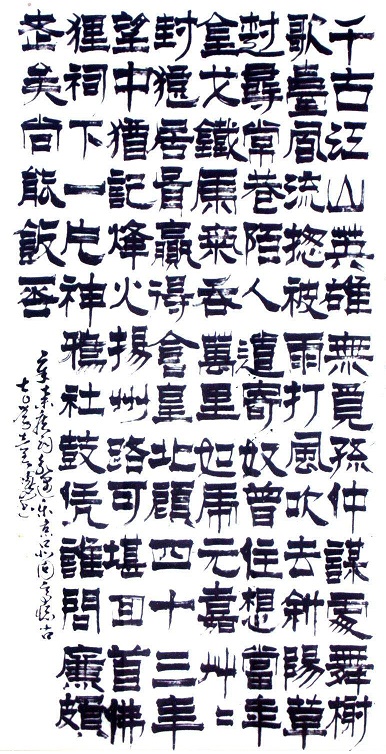 千古江山英雄無覓孫仲謀處舞榭
歌臺風流摠被雨打風吹去斜陽草
樹尋常巷陌人道寄奴曾住想當年
金戈鐵馬氣吞萬里如虎元嘉艸〻
封狼居胥贏得倉皇北顧四十三年
望中猶記烽火揚州路可堪回首佛
狸祠下一片神鴉社鼓凭誰問廉頗
老矣尚能飯否
辛棄疾詞永遇樂京口北固亭懷古